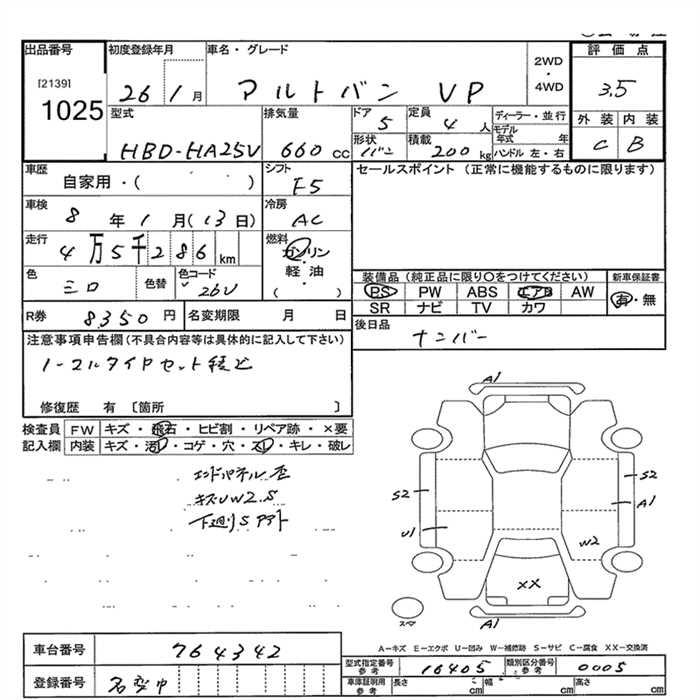 出品番号
[2139]
1025
初度登録年月
26 1月
車名・グレード
アルトバン VP
2WD
・
4WD
評価点
3.5
外装 内装
C B
型式
HBD-HA25V
排気量
660 cc
ドア
5
定員
4 人
形状
バン
積載
200 kg
ディーラー・並行
モデル年式 年
ハンドル 左・右
車歴
自家用・( )
シフト
F5
セールスポイント (正常に機能するものに限ります)
車検
8 年 1 月(13日)
冷房
AC
走行
4万5千286 km
燃料
ガソリン
・
軽油
( )
色
シロ
色替
色コード
26U
装備品(純正品に限り○をつけてください)
PS PW ABS エアB AW
SR ナビ TV カワ
新車保証書
有・無
R券 8350 円
名変期限 月 日
後日品
ナンバー
注意事項申告欄(不具合内容等は具体的に記入して下さい)
修復歴 有 〔箇所 〕
検査員 FW キズ・飛石・ヒビ割・リペア跡・×要
記入欄 内装 キズ・汚レ・コゲ・穴・スレ・キレ・破レ
エンドパネル歪
キズUW2.S
下廻りS
A1
S2
U1
S2
A1
W2
XX
スペア
A1
A–キズ E–エクボ U–凹み W–補修跡 S–サビ C–腐食 XX–交換済
車台番号 764342
登録番号 名変中
型式指定番号
参考
16405
類別区分番号
参考
0005
車体証明用
参考
長さ cm 幅 cm 高さ cm